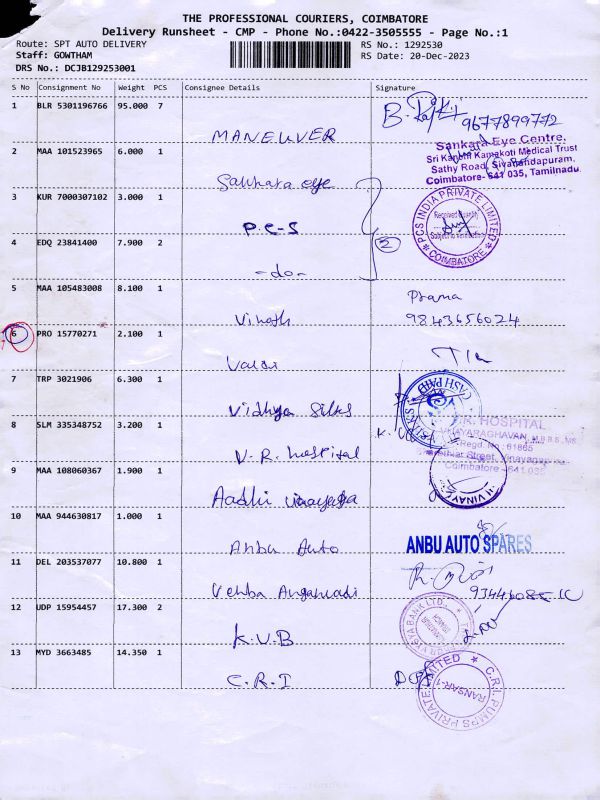 THE PROFESSIONAL COURIERS, COIMBATORE
Delivery Runsheet - CMP - Phone No.:0422-3505555 - Page No.:1
Route: SPT AUTO DELIVERY
RS No.: 1292530
Staff: GOWTHAM
RS Date: 20-Dec-2023
DRS No.: DCJB129253001
S No Consignment No Weight PCS Consignee Details Signature
1 BLR 5301196766 95.000 7
MANEUVER
9677899772
2 MAA 101523965 6.000 1
Sankara eye
Sankara Eye Centre,
Sri Kanchi Kamakoti Medical Trust
Sathy Road, Sivanandapuram,
Coimbatore- 641 035, Tamilnadu.
3 KUR 7000307102 3.000 1
P.C.S
PCS INDIA PRIVATE LIMITED
COIMBATORE
4 EDQ 23841400 7.900 2
-do-
2
5 MAA 105483008 8.100 1
Vinoth
Prama
9843656024
6 PRO 15770271 2.100 1
7 TRP 3021906 6.300 1
Vidhya Silks
CASH PAID
8 SLM 335348752 3.200 1
V.R. hospital
HOSPITAL
VIJAYARAGHAVAN, M.B.B.S., MS
Regd. No : 61865
Street, Vinayagapuram
Coimbatore - 641 035
9 MAA 108060367 1.900 1
Aadhi vinayaga
10 MAA 944630817 1.000 1
Anbu Auto
ANBU AUTO SPARES
11 DEL 203537077 10.800 1
12 UDP 15954457 17.300 2
K.V.B
VYSYA BANK LTD.
13 MYD 3663485 14.350 1
C.R.I
C.R.I. PUMPS PRIVATE LIMITED